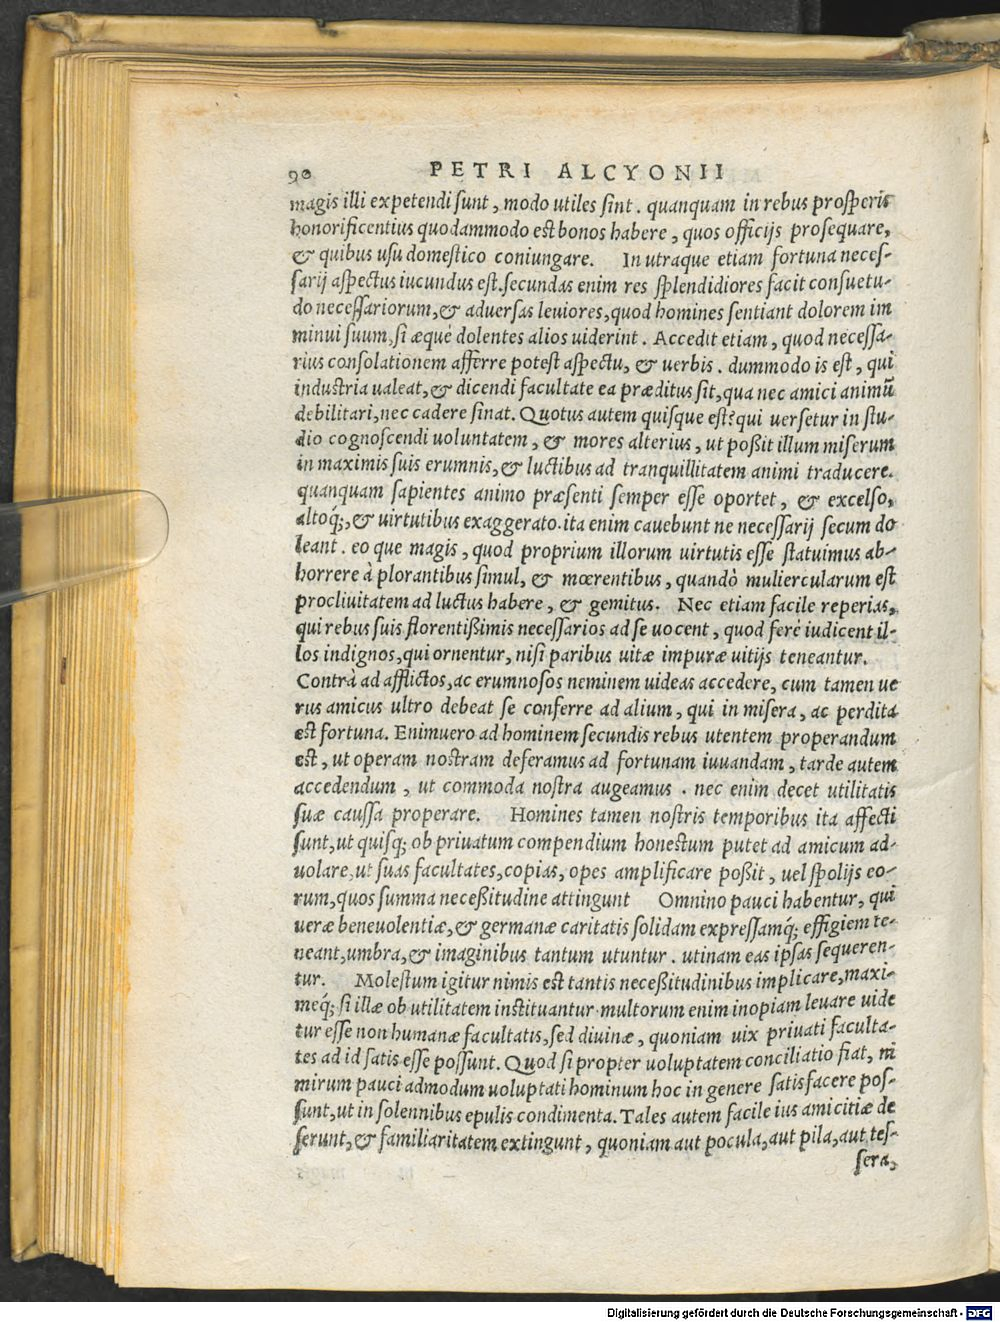 90 PETRI ALCYONII
magis illi expetendi sunt, modo utiles sint. quanquam in rebus prosperis
honorificentius quodammodo est bonos habere, quos officijs prosequare,
& quibus usu domestico coniungare. In utraque etiam fortuna neces-
sarij aspectus iucundus est. secundas enim res splendidiores facit consuetu-
do necessariorum, & aduersas leuiores, quod homines sentiant dolorem im
minui suum, si æqué dolentes alios uiderint. Accedit etiam, quod necessa-
rius consolationem afferre potest aspectu, & uerbis. dummodo is est, qui
industria ualeat, & dicendi facultate ea præditus sit, qua nec amici animū
debilitari, nec cadere sinat. Quotus autem quisque est? qui uersetur in stu-
dio cognoscendi uoluntatem, & mores alterius, ut poßit illum miserum
in maximis suis erumnis, & luctibus ad tranquillitatem animi traducere.
quanquam sapientes animo præsenti semper esse oportet, & excelso,
altoq́;, & uirtutibus exaggerato. ita enim cauebunt ne necessarij secum do
leant. eo que magis, quod proprium illorum uirtutis esse statuimus ab-
horrere à plorantibus simul, & mœrentibus, quandò muliercularum est
procliuitatem ad luctus habere, & gemitus. Nec etiam facile reperias,
qui rebus suis florentißimis necessarios ad se uocent, quod feré iudicent il-
los indignos, qui ornentur, nisi paribus uitæ impuræ uitijs teneantur.
Contrà ad afflictos, ac erumnosos neminem uideas accedere, cum tamen ue
rus amicus ultro debeat se conferre ad alium, qui in misera, ac perdita
est fortuna. Enimuero ad hominem secundis rebus utentem properandum
est, ut operam nostram deferamus ad fortunam iuuandam, tarde autem
accedendum, ut commoda nostra augeamus. nec enim decet utilitatis
suæ caussa properare. Homines tamen nostris temporibus ita affecti
sunt, ut quisq; ob priuatum compendium honestum putet ad amicum ad-
uolare, ut suas facultates, copias, opes amplificare poßit, uel spolijs eo-
rum, quos summa neceßitudine attingunt Omnino pauci habentur, qui
ueræ beneuolentiæ, & germanæ caritatis solidam expressamq́; effigiem te-
neant, umbra, & imaginibus tantum utuntur. utinam eas ipsas sequeren-
tur. Molestum igitur nimis est tantis neceßitudinibus implicare, maxi-
meq́; si illæ ob utilitatem instituantur. multorum enim inopiam leuare uide
tur esse non humanæ facultatis, sed diuinæ, quoniam uix priuati faculta-
tes ad id satis esse possunt. Quod si propter uoluptatem conciliatio fiat, ni
mirum pauci admodum uoluptati hominum hoc in genere satisfacere pos-
sunt, ut in solennibus epulis condimenta. Tales autem facile ius amicitiæ de
serunt, & familiaritatem extingunt, quoniam aut pocula, aut pila, aut tes-
sera,
Digitalisierung gefördert durch die Deutsche Forschungsgemeinschaft - DFG